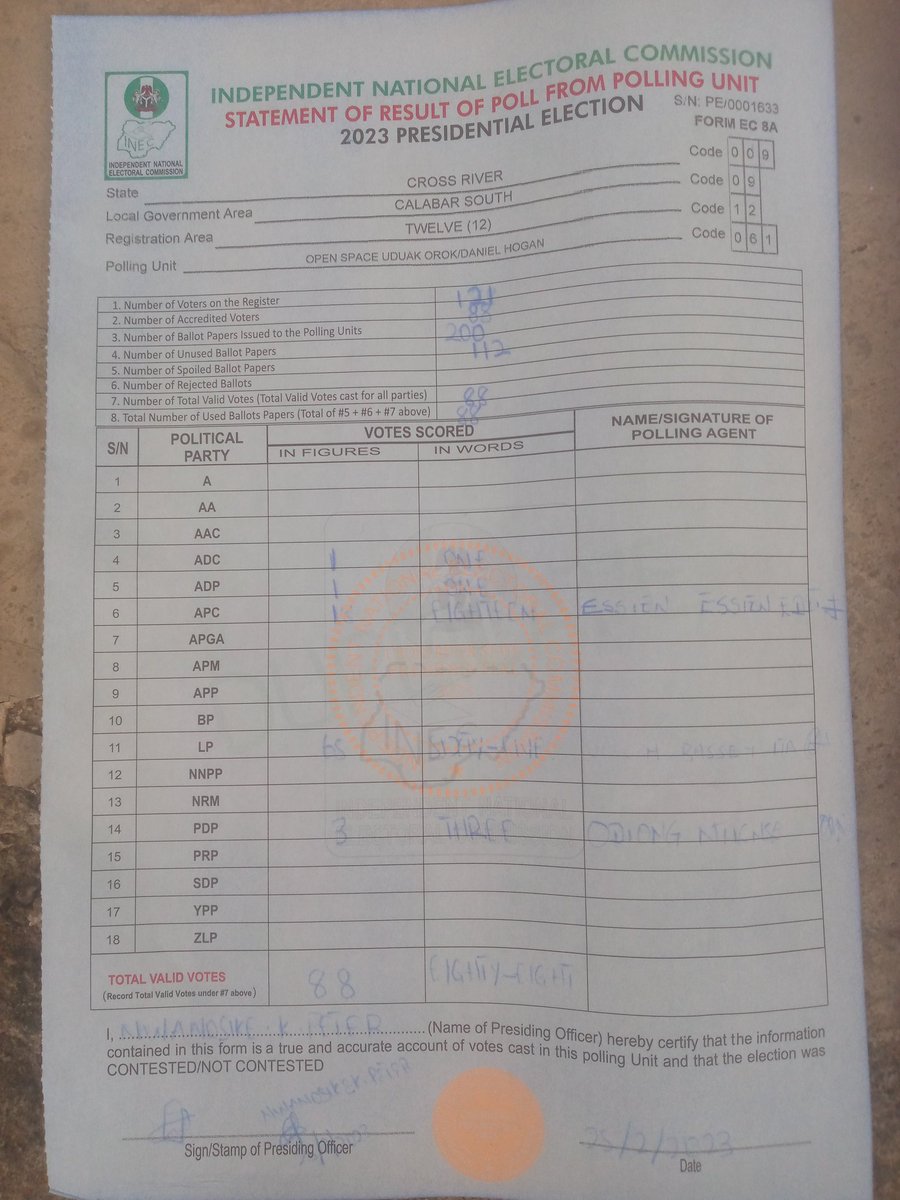 INDEPENDENT NATIONAL ELECTORAL COMMISSION
STATEMENT OF RESULT OF POLL FROM POLLING UNIT
2023 PRESIDENTIAL ELECTION
S/N: PE/0001633
FORM EC 8A
INEC
INDEPENDENT NATIONAL
ELECTORAL COMMISSION
State CROSS RIVER Code 009
Local Government Area CALABAR SOUTH Code 09
Registration Area TWELVE (12) Code 12
Polling Unit OPEN SPACE UDUAK OROK/DANIEL HOGAN Code 061
1. Number of Voters on the Register
2. Number of Accredited Voters 88
3. Number of Ballot Papers Issued to the Polling Units 200
4. Number of Unused Ballot Papers 112
5. Number of Spoiled Ballot Papers
6. Number of Rejected Ballots
7. Number of Total Valid Votes (Total Valid Votes cast for all parties) 88
8. Total Number of Used Ballots Papers (Total of #5 + #6 + #7 above) 88
S/N POLITICAL PARTY VOTES SCORED NAME/SIGNATURE OF POLLING AGENT
IN FIGURES IN WORDS
1 A
2 AA
3 AAC
4 ADC 1 ONE
5 ADP 1 ONE
6 APC EIGHTEEN ESSIEN ESSIEN
7 APGA
8 APM
9 APP
10 BP
11 LP 65 SIXTY-FIVE BASSEY
12 NNPP
13 NRM
14 PDP 3 THREE
15 PRP
16 SDP
17 YPP
18 ZLP
TOTAL VALID VOTES 88 EIGHTY-EIGHT
(Record Total Valid Votes under #7 above)
I, K PETER (Name of Presiding Officer) hereby certify that the information
contained in this form is a true and accurate account of votes cast in this polling Unit and that the election was
CONTESTED/NOT CONTESTED
25/2/2023
Sign/Stamp of Presiding Officer Date